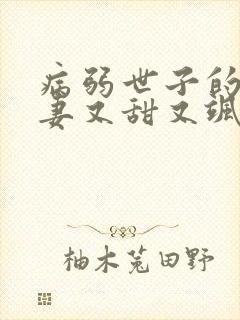 病弱世子的
妻又甜又飒
柚木菟田野